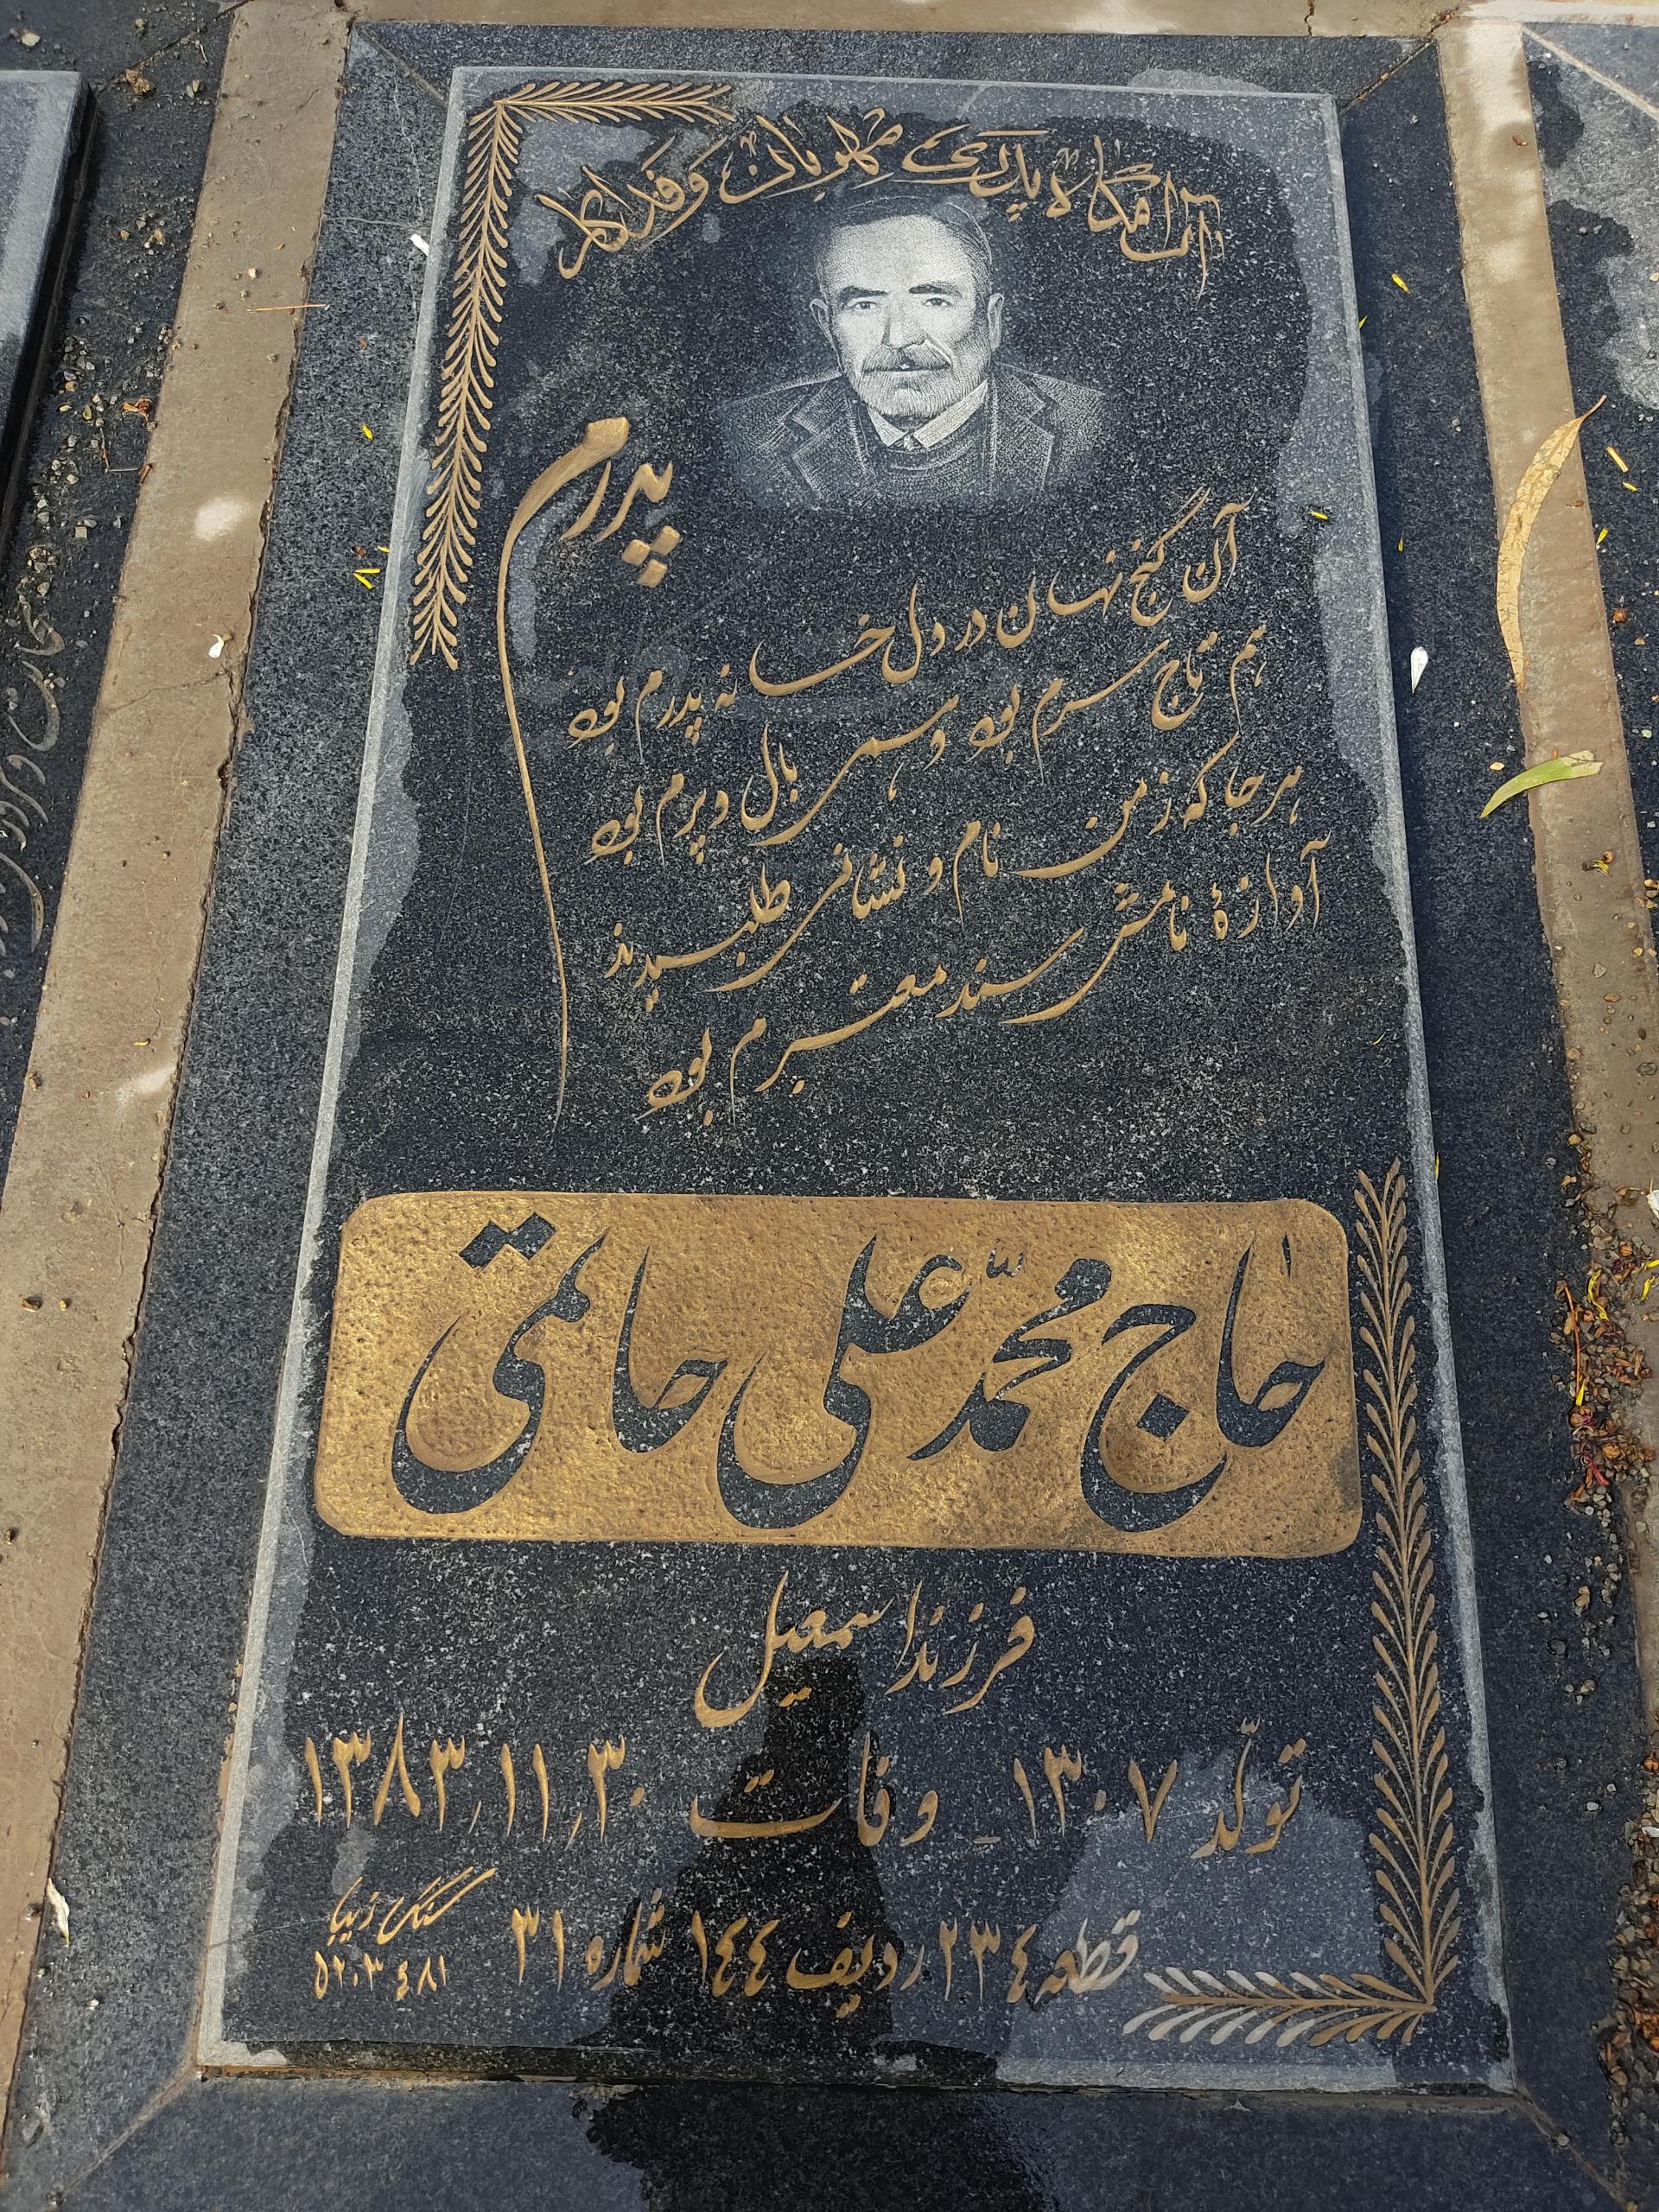 آرامگاه پدری مهربان و فداکار
پدرم
آن گنج نهان در دل خانه پدرم بود
هم تاج سرم بود و همی بال و پرم بود
هرجا که زمن نام و نشانی طلبیدند
آوازهٔ نامش سند معتبرم بود
حاج محمّد علی حاتمی
فرزند اسمعیل
تولّد ۱۳۰۷ - وفات ۱۳۸۳٫۱۱٫۳۰
قطعه ۲۳۴ ردیف ۱۴۴ شماره ۳۱
سنگ زیبا
۵۲۰۳۴۸۱